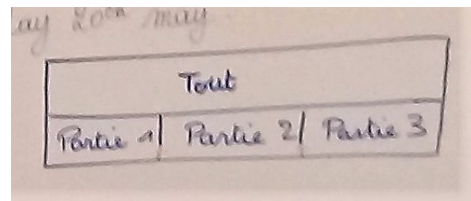 ay 20th may
Tout
Partie 1 Partie 2 Partie 3